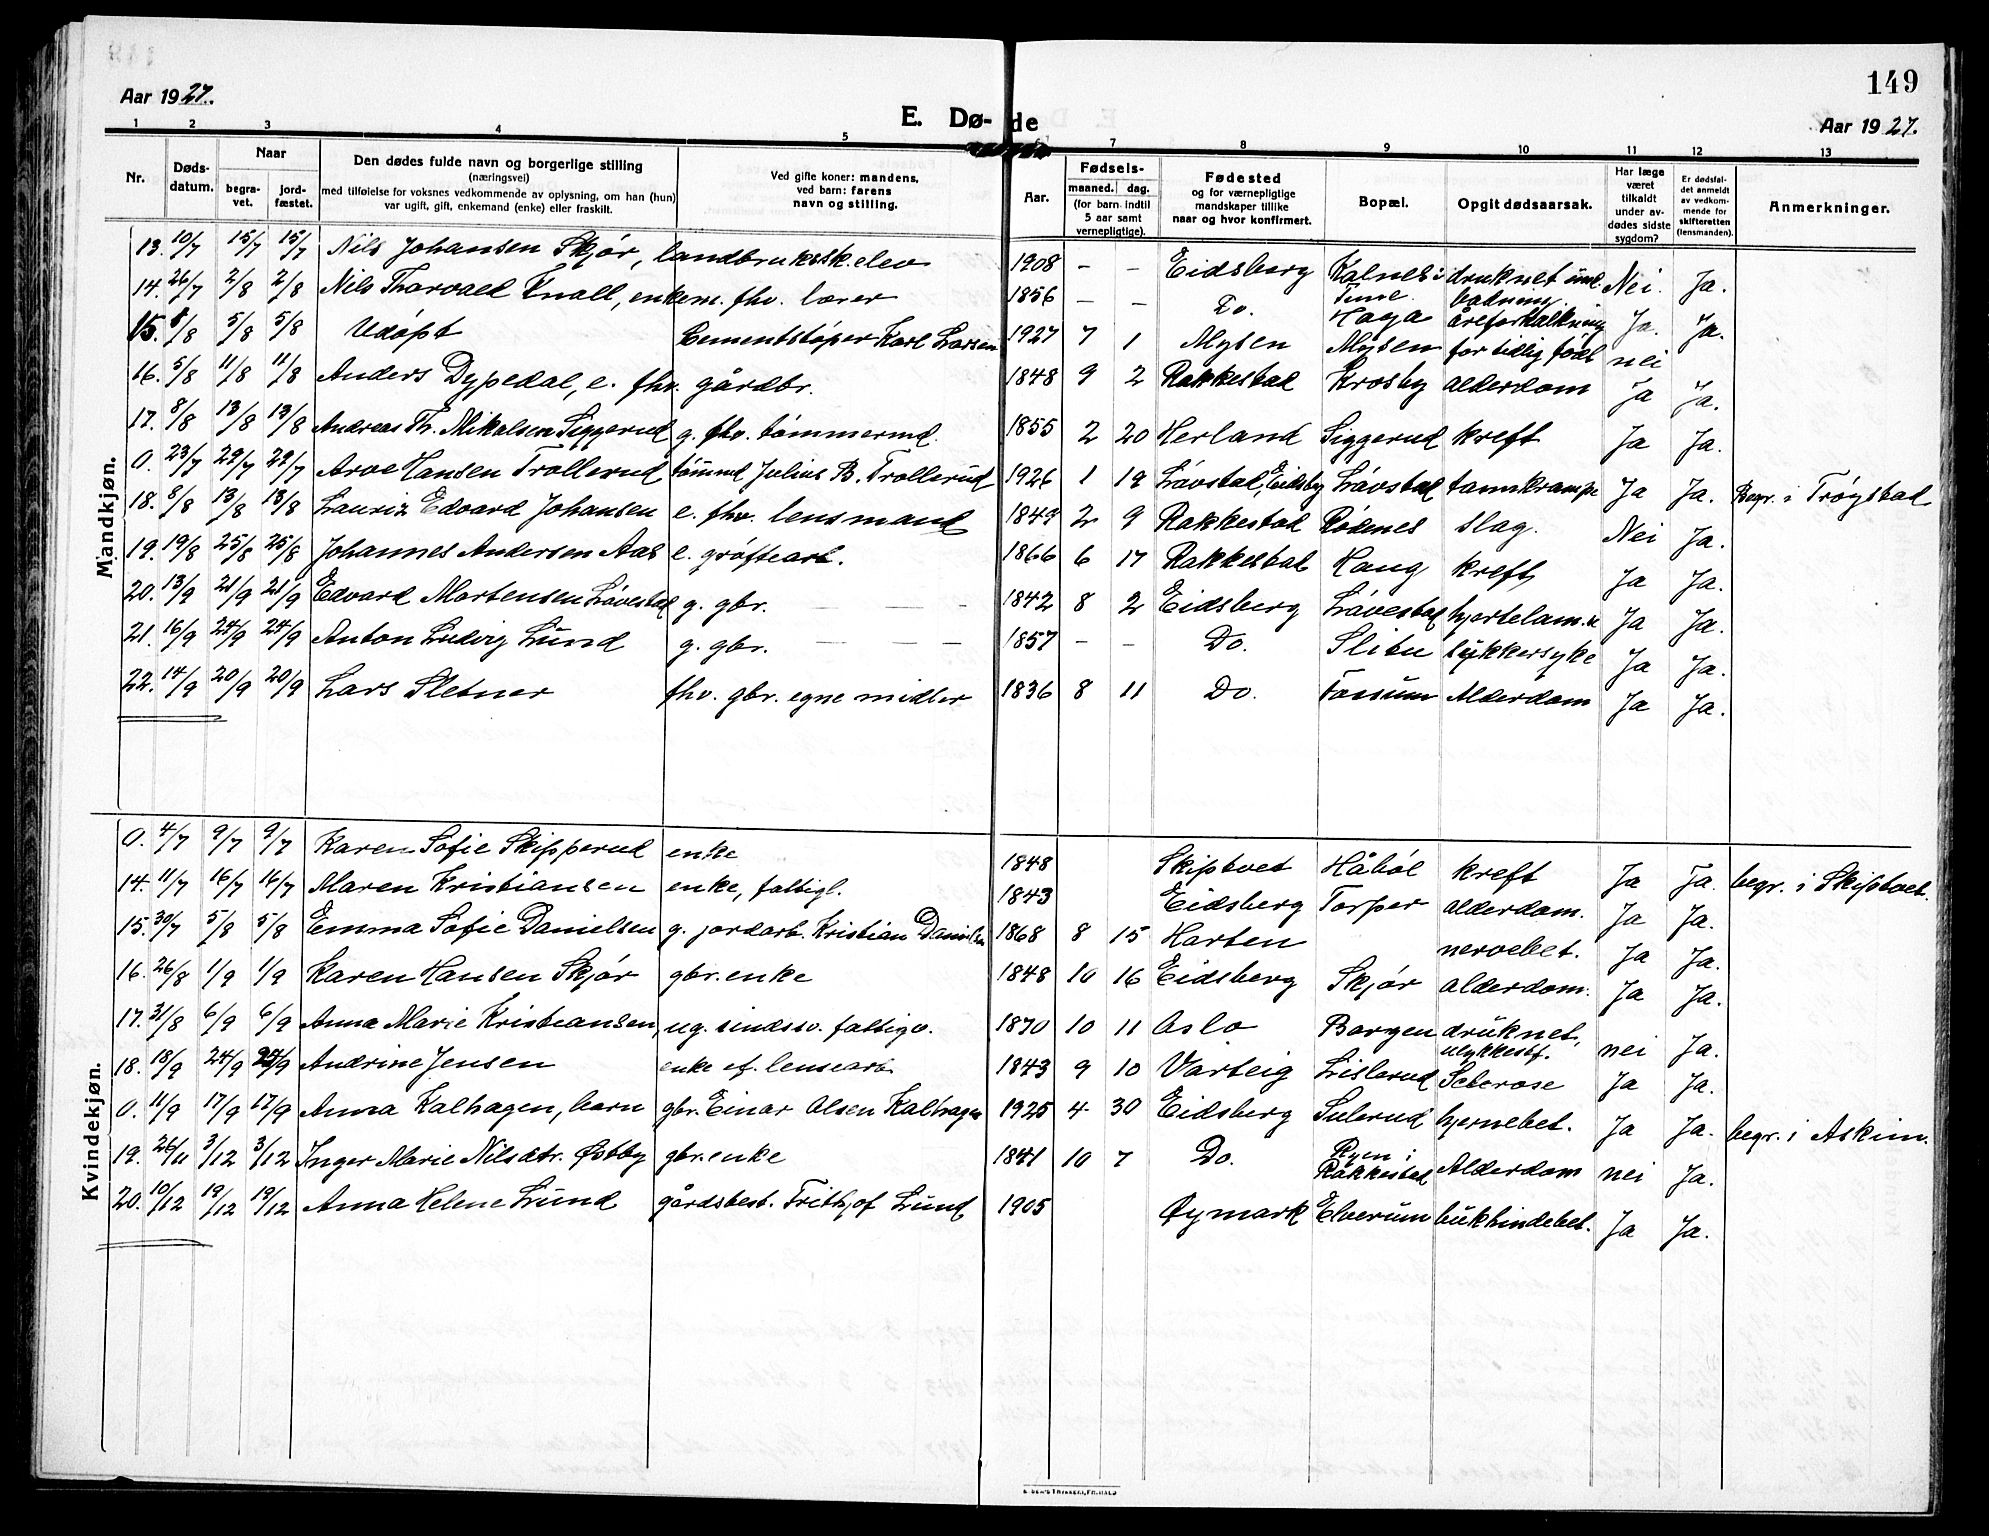 149
Aar 1927.
E. Dø-de
Aar 1927.
1 2 3 4 5 7 8 9 10 11 12 13
Nr.
Døds-
datum.
Naar
begra-
vet.
jord-
fæstet.
Den dødes fulde navn og borgerlige stilling
(næringsvei)
med tilføielse for voksnes vedkommende av oplysning, om han (hun)
var ugift, gift, enkemand (enke) eller fraskilt.
Ved gifte koner: mandens,
ved barn: farens
navn og stilling.
Aar.
Fødsels-
maaned. dag.
(for barn indtil
5 aar samt
vernepligtige).
Fødested
og for værnepligtige
mandskaper tillike
naar og hvor konfirmert.
Bopæl.
Opgit dødsaarsak.
Har læge
været
tilkaldt
under av-
dødes sidste
sygdom?
Er dødsfal-
det anmeldt
av vedkom-
mende for
skifteretten
(lensmanden).
Anmerkninger.
Mandkjøn.
13. 10/7 15/7 15/7 Nils Johansen Skjør, landbruksk. elev 1908 - - Eidsberg Kalnes i Tune druknet und. badning. Nei. Ja.
14. 26/7 2/8 2/8 Nils Thorvald Knall, enkem. fhv. lærer 1856 - - Do. Haga åreforkalkning Ja. Ja.
15. 5/8 5/8 Udøpt Cementstøper Karl Larsen 1927 7 1 Mysen Mysen for tidlig født nei
16. 5/8 11/8 11/8 Anders Dypedal, e. fhv. gårdbr. 1848 9 2 Rakkestad Krosby alderdom Ja Ja.
17. 8/8 13/8 13/8 Andreas Th. Mikalsen Siggerud g. fhv. tømmermd. 1855 2 20 Herland Siggerud kreft Ja Ja.
0. 23/7 29/7 29/7 Arve Hansen Trollerud tømmd Julius B. Trollerud 1926 1 19 Låvstad, Eidsby Låvstad tannkrampe Ja Ja. Begr. i Trøgstad
18. 8/8 13/8 13/8 Lauriz Edvard Johansen e. fhv. lensmand 1849 2 9 Rakkestad Rødenes slag. Nei Ja.
19. 19/8 25/8 25/8 Johannes Andersen Aas e. grøftearb. 1866 6 17 Rakkestad Haug kreft Ja Ja.
20. 13/9 21/9 21/9 Edvard Martensen Løvestad g. gbr. - - - 1842 8 2 Eidsberg Løvestad hjertelam. Ja Ja.
21. 16/9 24/9 24/9 Anton Ludvig Lund g. gbr. - - - 1857 - - Do. Slitu sukkersyke Ja Ja.
22. 14/9 20/9 20/9 Lars Sletner fhv. gbr. egne midler 1836 8 11 Do. Fossum Alderdom Ja Ja.
Kvindekjøn.
0. 4/7 9/7 9/7 Karen Sofie Skipperud enke 1848 Skiptvet Håbøl kreft Ja Ja. begr. i Skiptvet.
14. 11/7 16/7 16/7 Maren Kristiansen enke, fattigl. 1843 Eidsberg Torper alderdom. Ja Ja.
15. 30/7 5/8 5/8 Emma Sofie Danielsen g. jordarb. Kristian Danielsen 1868 8 15 Harten nervebet. Ja Ja.
16. 26/8 1/9 1/9 Karen Hansen Skjør gbr. enke 1848 10 16 Eidsberg Skjør alderdom. Ja Ja.
17. 31/8 6/9 6/9 Anna Marie Kristiansen, ug. sindssv. fattigv. 1870 10 11 Oslo Borgen druknet, ulykkestf. nei Ja.
18. 18/9 24/9 24/9 Andrine Jensen enke ef. lensearb. 1843 9 10 Varteig Lislerud Ja Ja.
0. 11/9 17/9 17/9 Anna Kalhagen, barn gbr. Einar Olsen Kalhagen 1925 4 30 Eidsberg Sulerud hjernebet. Ja Ja. begr. i Askim.
19. 26/11 3/12 3/12 Inger Marie Nilsdtr. Østby gbr. enke 1841 10 7 Do. Ryen i Rakkestad Alderdom nei Ja.
20. 10/12 19/12 19/12 Anna Helene Lund gårdsbest. Frithjof Lund 1905 Øymark Elverum bukhindebet. Ja Ja.